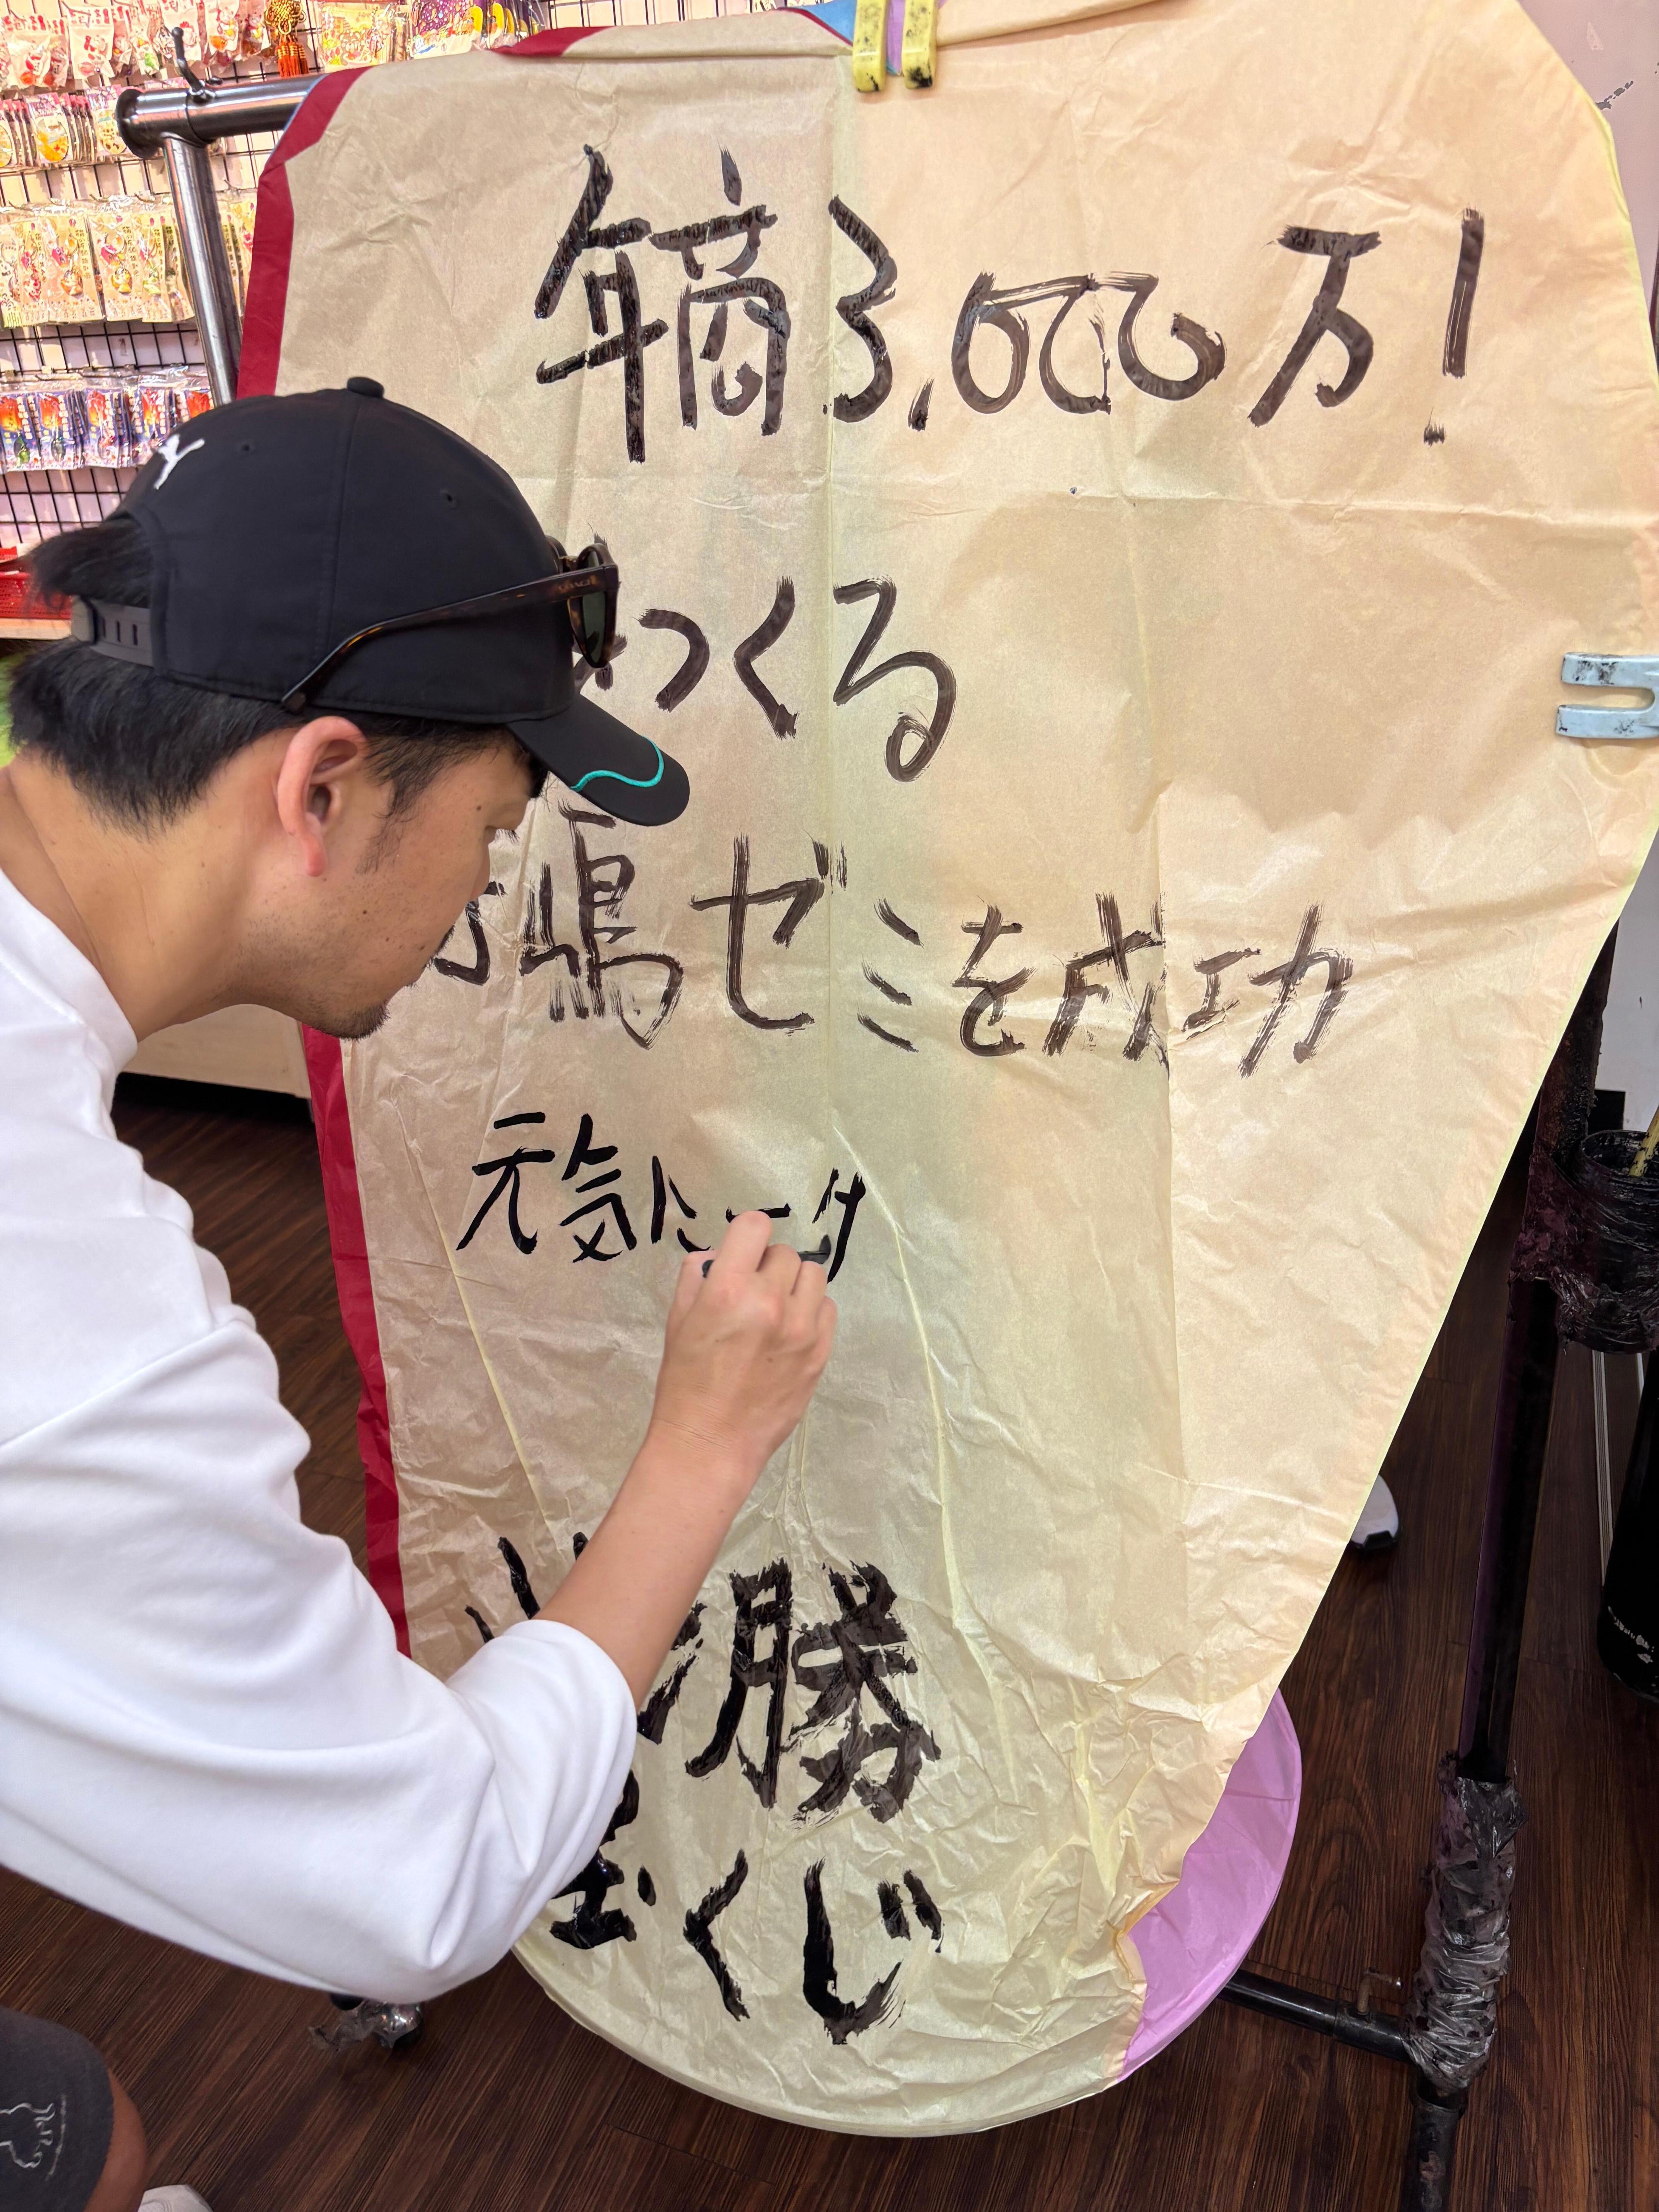 年商3,000万!
つくる
嶋ゼミを成功
元気に
勝
くじ